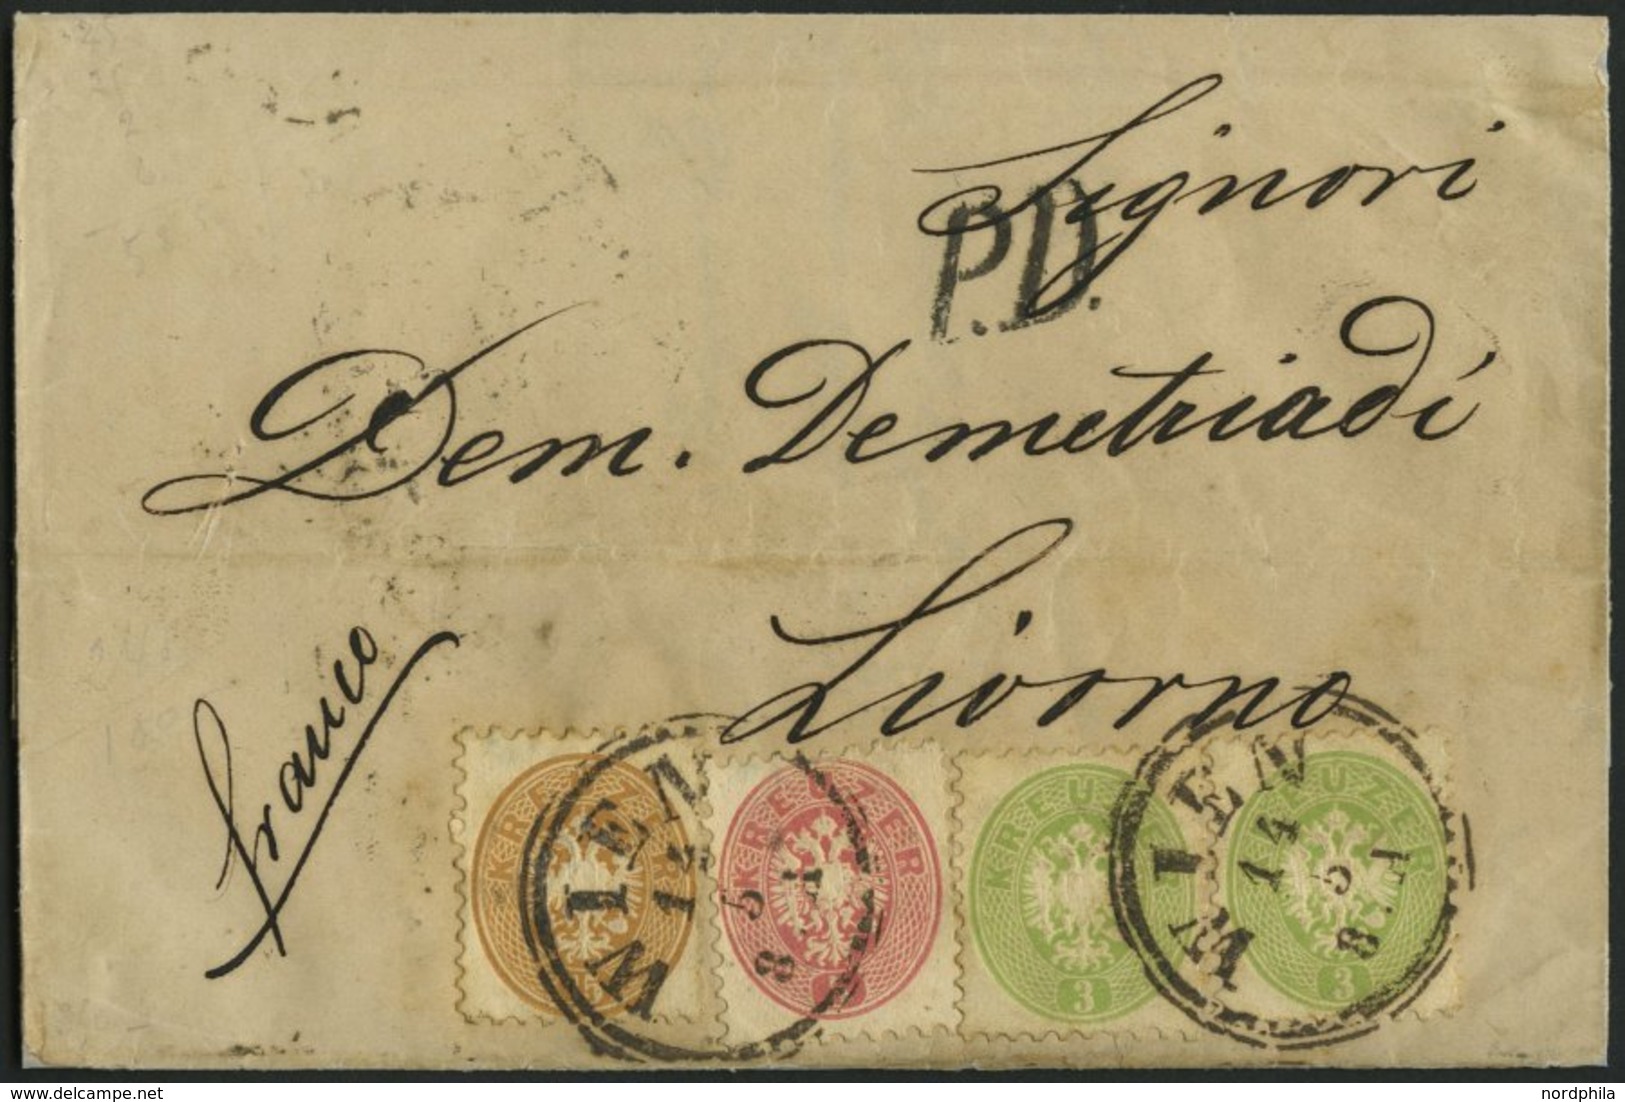 Signori
P.D.
Dem. Demetriadi
Livorno
franco
WIEN
14
5
8.A
KREUZER
KREUZER
KREUZER
3
WIEN
14
5
8.A
KREUZER
3
delcampe.net
nordphila